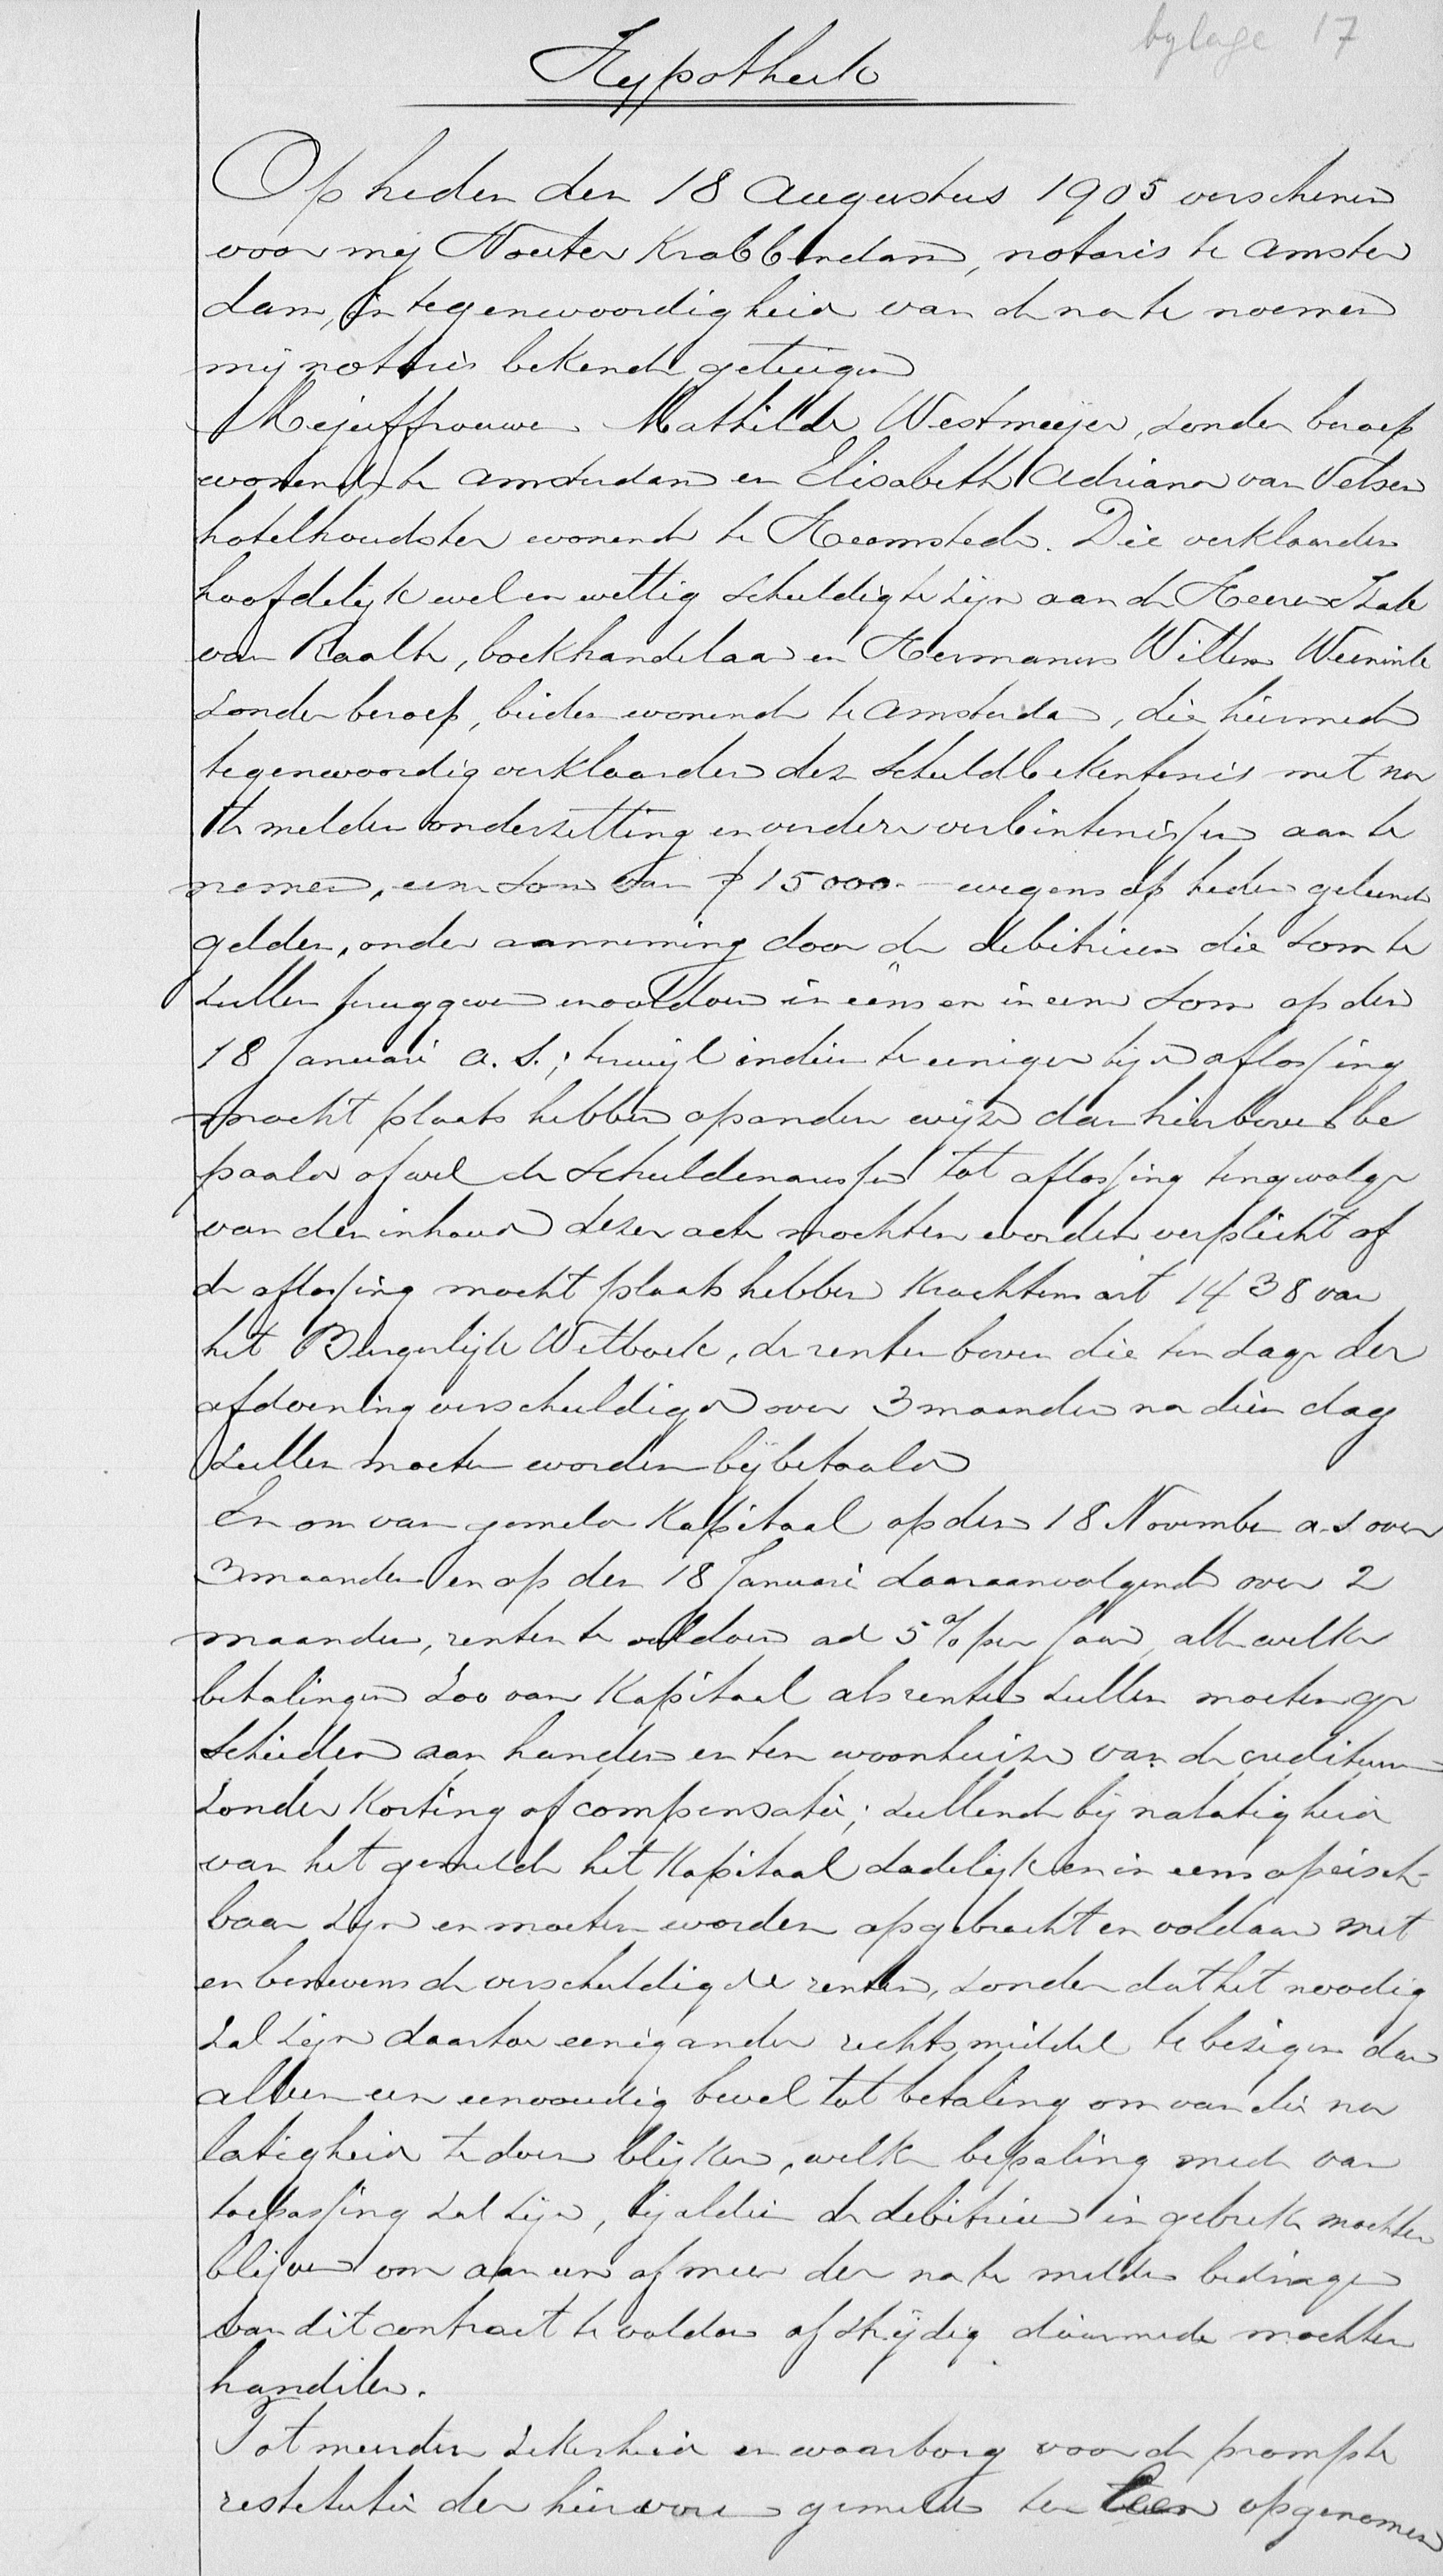 bylage 17
Hypotheek
Op heden den 18 Augustus 1905 verschenen
voor mij Wouter Krabbendam, notaris te Amster
dam, in tegenwoordigheid van de na te noemen
mij notaris bekende getuigen
Mejuffrouwen Mathilde Westmeijer, zonder beroep
wonende te Amsterdam en Elisabeth Adriana van Velsen
hotelhoudster wonende te Heemstede. Die verklaarden
hoofdelijk wel en wettig schuldig te zijn aan de Heeren Izak
van Raalte, boekhandelaar en Hermanus Willem Weenink
zonder beroep, beiden wonende te Amsterdam, die hiermede
tegenwoordig verklaarden deze schuldbekentenis met na
te melden onderzetting en verdere verbintenissen aan te
nemen, eene som van ƒ 15000.- wegens op heden geleende
gelden, onder aanneming door de debitricen die som te
zullen teruggeven en voldoen in ééns en in eene som op den
18 Januari a.s.; terwijl indien te eeniger tijd aflossing
mocht plaats hebben op andere wijze dan hierboven be
paald ofwel de schuldenaressen tot aflossing tengevolge
van den inhoud dezer acte mochten worden verplicht of
de aflossing mocht plaats hebben krachtens art 1438 van
het Burgerlijk Wetboek, de renten boven die ten dage der
afdoening verschuldigd over 3 maanden na dien dag
zullen moeten worden bijbetaald
En om van gemeld Kapitaal op den 18 November a.s over
3 maanden en op den 18 Januari daaraanvolgende over 2
maanden, renten te voldoen ad 5 % per jaar, alle welke
betalingen zoo van Kapitaal als renten zullen moeten ge
schieden aan handen en ten woonhuize van de crediteuren
zonder korting of compensatie; zullende bij nalatigheid
van het gemelde het Kapitaal dadelijk en in eens opeisch-
baar zijn en moeten worden opgebracht en voldaan met
en benevens de verschuldigde renten, zonder dat het noodig
zal zijn daartoe eenig ander rechtsmiddel te bezigen dan
alleen een eenvoudig bevel tot betaling om van die na
latigheid te doen blijken, welke bepaling mede van
toepassing zal zijn, bijaldien de debitricen in gebreke mochten
blijven om aan een of meer der na te melden bedingen
van dit contract te voldoen of strijdig daarmede mochten
handelen.
Tot meerdere zekerheid en waarborg voor de prompte
restitutie der hiervoren gemelde ter leen opgenomen